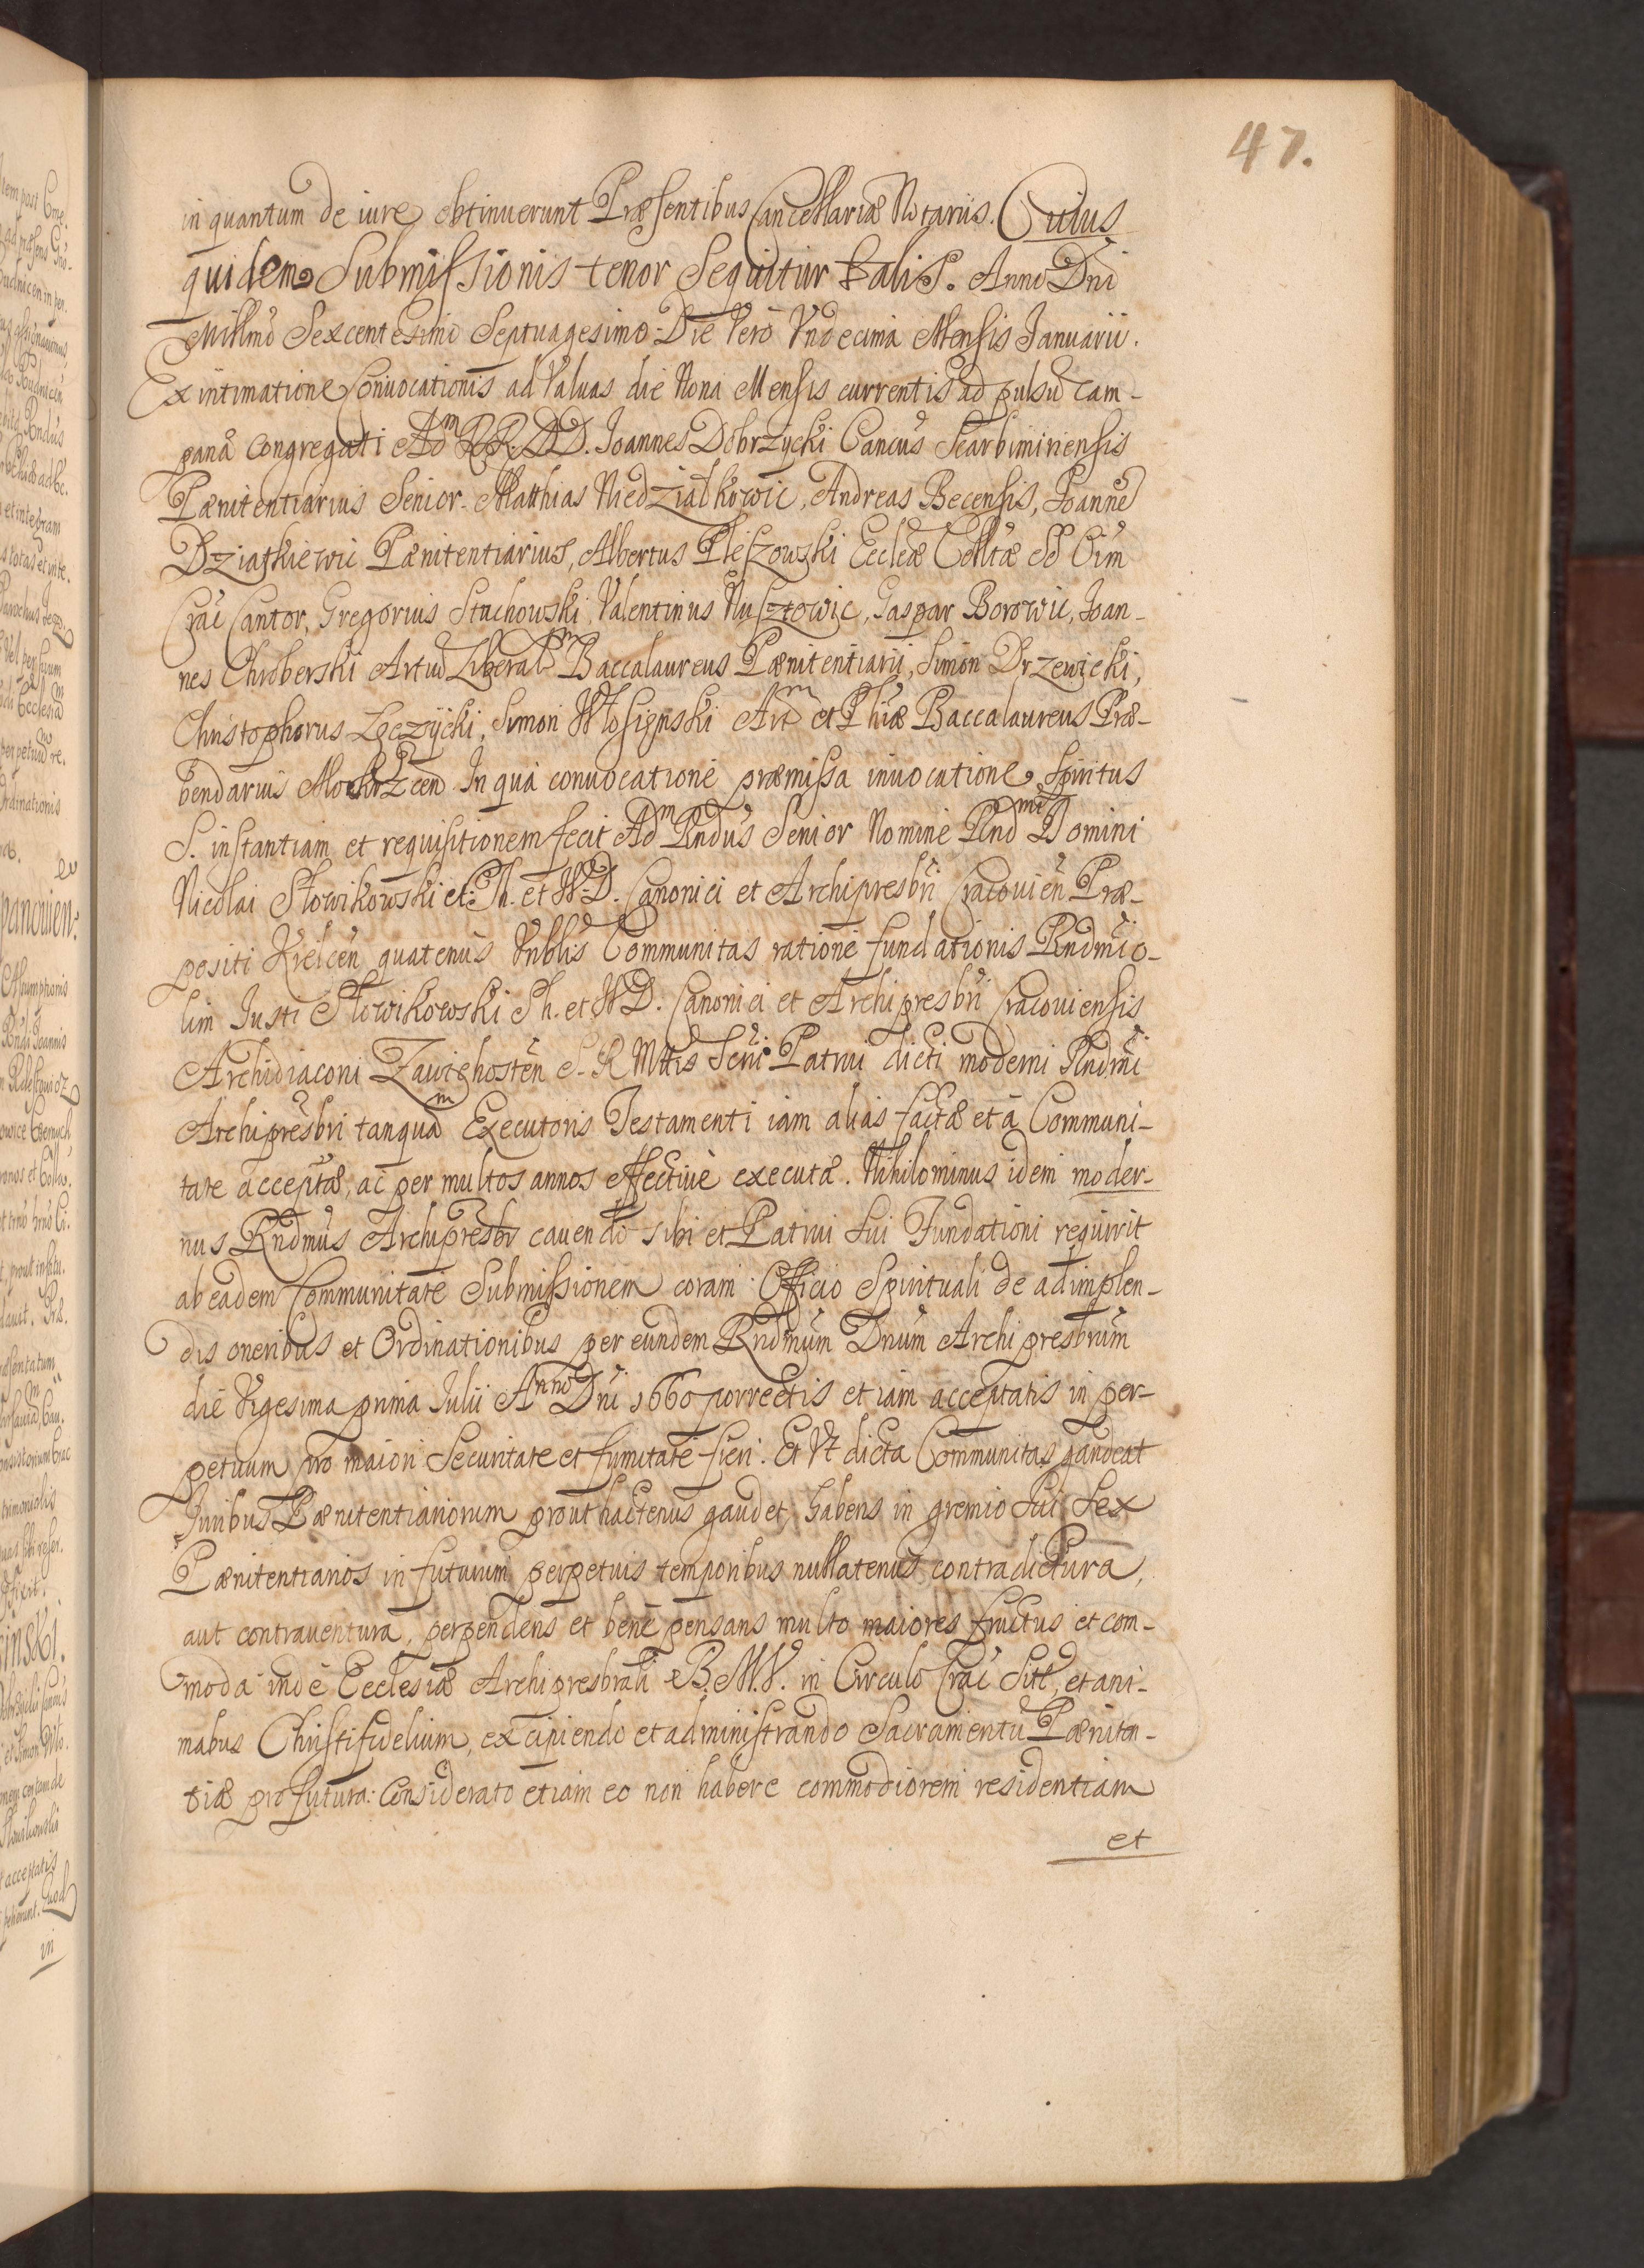 47.
in quantum de iure obtinuerunt Præsentibus Cancellariæ Notariis. Cuius
quidem Submissionis tenor Sequitur talis. Anno Dni
Millmo Sexcentesimo Septuagesimo Die Vero Undecima Mensis Januarii.
Ex intimatione Convocationis ad Valvas die Nona Mensis currentis ad pulsū cam-
panæ congregati Adm RR. DD. Joannes Dobrzycki Cancus Scarbimiriensis
Pænitentiarius Senior. Matthias Niedzialkowic, Andreas Becensis, Joanne
Dziatkiewic Pænitentiarius, Albertus Pleszowski Ecclæ Colltæ SS Oīm
Crac Cantor, Gregorius Stachowski, Valentinus Nusztowic, Gaspar Borowic, Joan-
nes Chroberski Artium Liberal Baccalaureus Pænitentiarii, Simon Drzewicki,
Christophorus Leczÿcki, Simon Wlosignski Art et Phiæ Baccalaureus Præ-
bendarius In qua convocatione præmissa invocatione Spiritus
S. instantiam et requisitionem fecit Adm Rndus Senior Nomine Rndmi Domini
Nicolai Słowikowski et Ph. et V. D. Canonici et Archipresbri Cracovien Præ-
positi Kielcen quatenus Vnblis Communitas ratione fundationis Rndmi o-
lim Justi Słowikowski Ph. et VD. Canonici et Archipresbri Cracoviensis
Archidiaconi Zawichosten S. R. Mttis Patrui dicti moderni Rndmi
Archipresbri tanquam Executoris Testamenti iam alias factæ et a Communi-
tate acceptæ, ac per multos annos effective executæ. Nihilominus idem moder-
nus Rndmus Archipresbr cavendo sibi et Patrui sui Fundationi requirit
ab eadem Communitate Submissionem coram Officio Spirituali de adimplen-
dis oneribus et Ordinationibus per eundem Rndmum Dnum Archipresbrum
die Vigesima prima Julii Anno Dni 1660 porrectis et iam acceptatis in per-
petuum pro maiori Securitate et firmitate fieri. Et Vt dicta Communitas gaudeat
Juribus Pænitentiariorum prout hactenus gaudet, habens in gremio sui Sex
Pænitentiarios in futurum perpetuis temporibus nullatenus contradictura,
aut contraventura, perpendens et bene pensans multo maiores fructus et com-
moda inde Ecclesiæ Archipresbrali B. M. V. in Circulo Crac Sitæ, et ani-
mabus Christifidelium, excipiendo et administrando Sacramentū Pæniten-
tiæ profutura: Considerato etiam eo non habere commodiorem residentiam
et